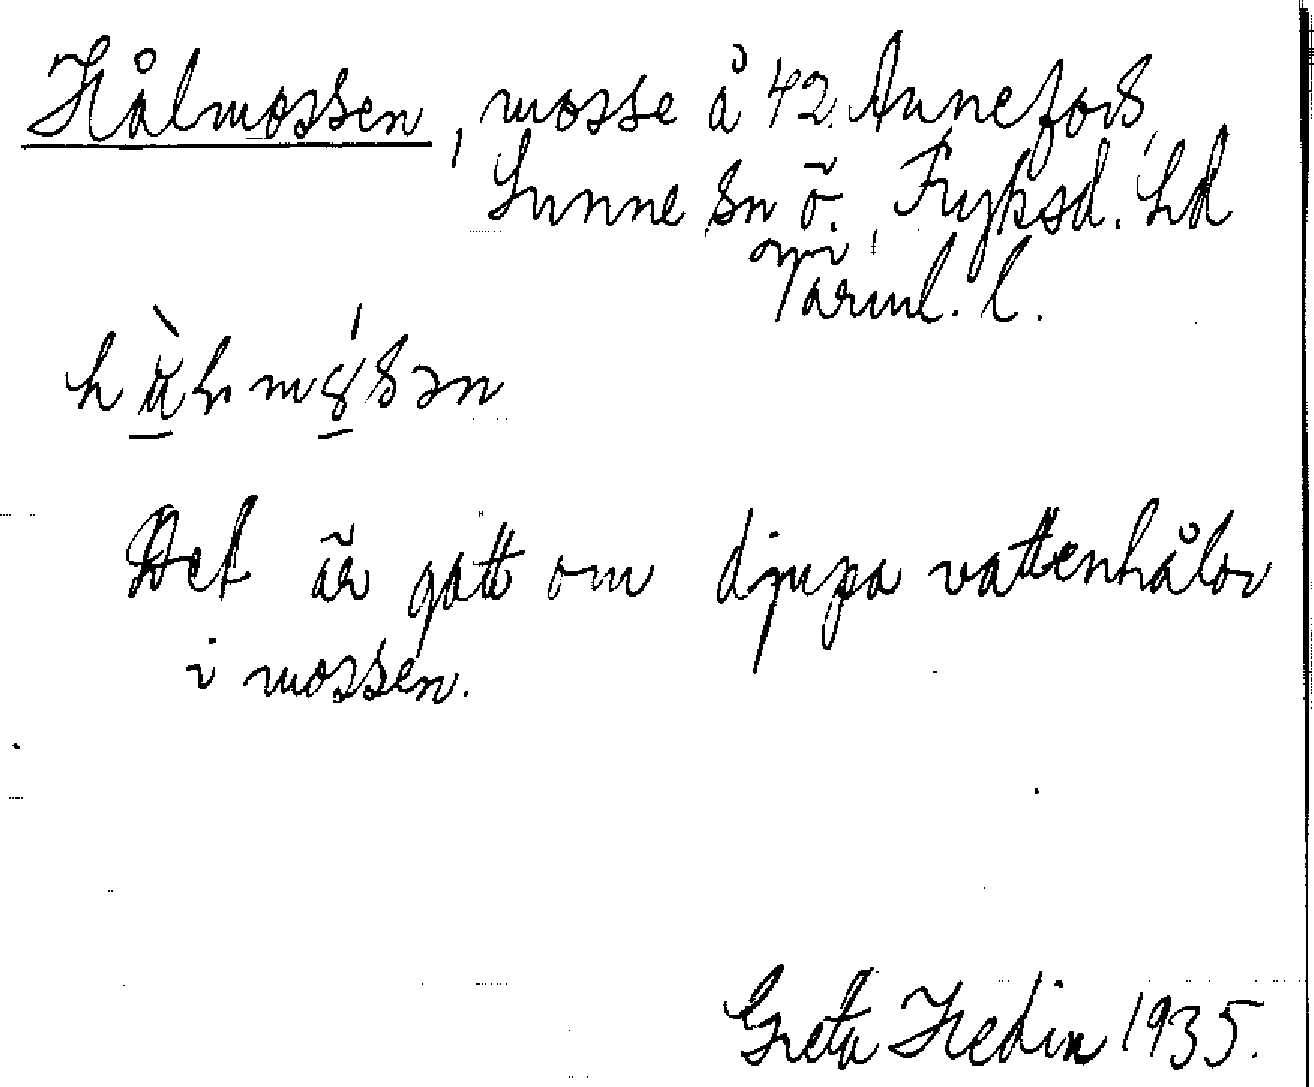 Hålmossen, mosse å 42. Annefors,
Sunne sn ö., Fryksd. hd
Värml. l.
Det är gott om djupa vattenhålor
i mossen.
Greta Hedin 1935.